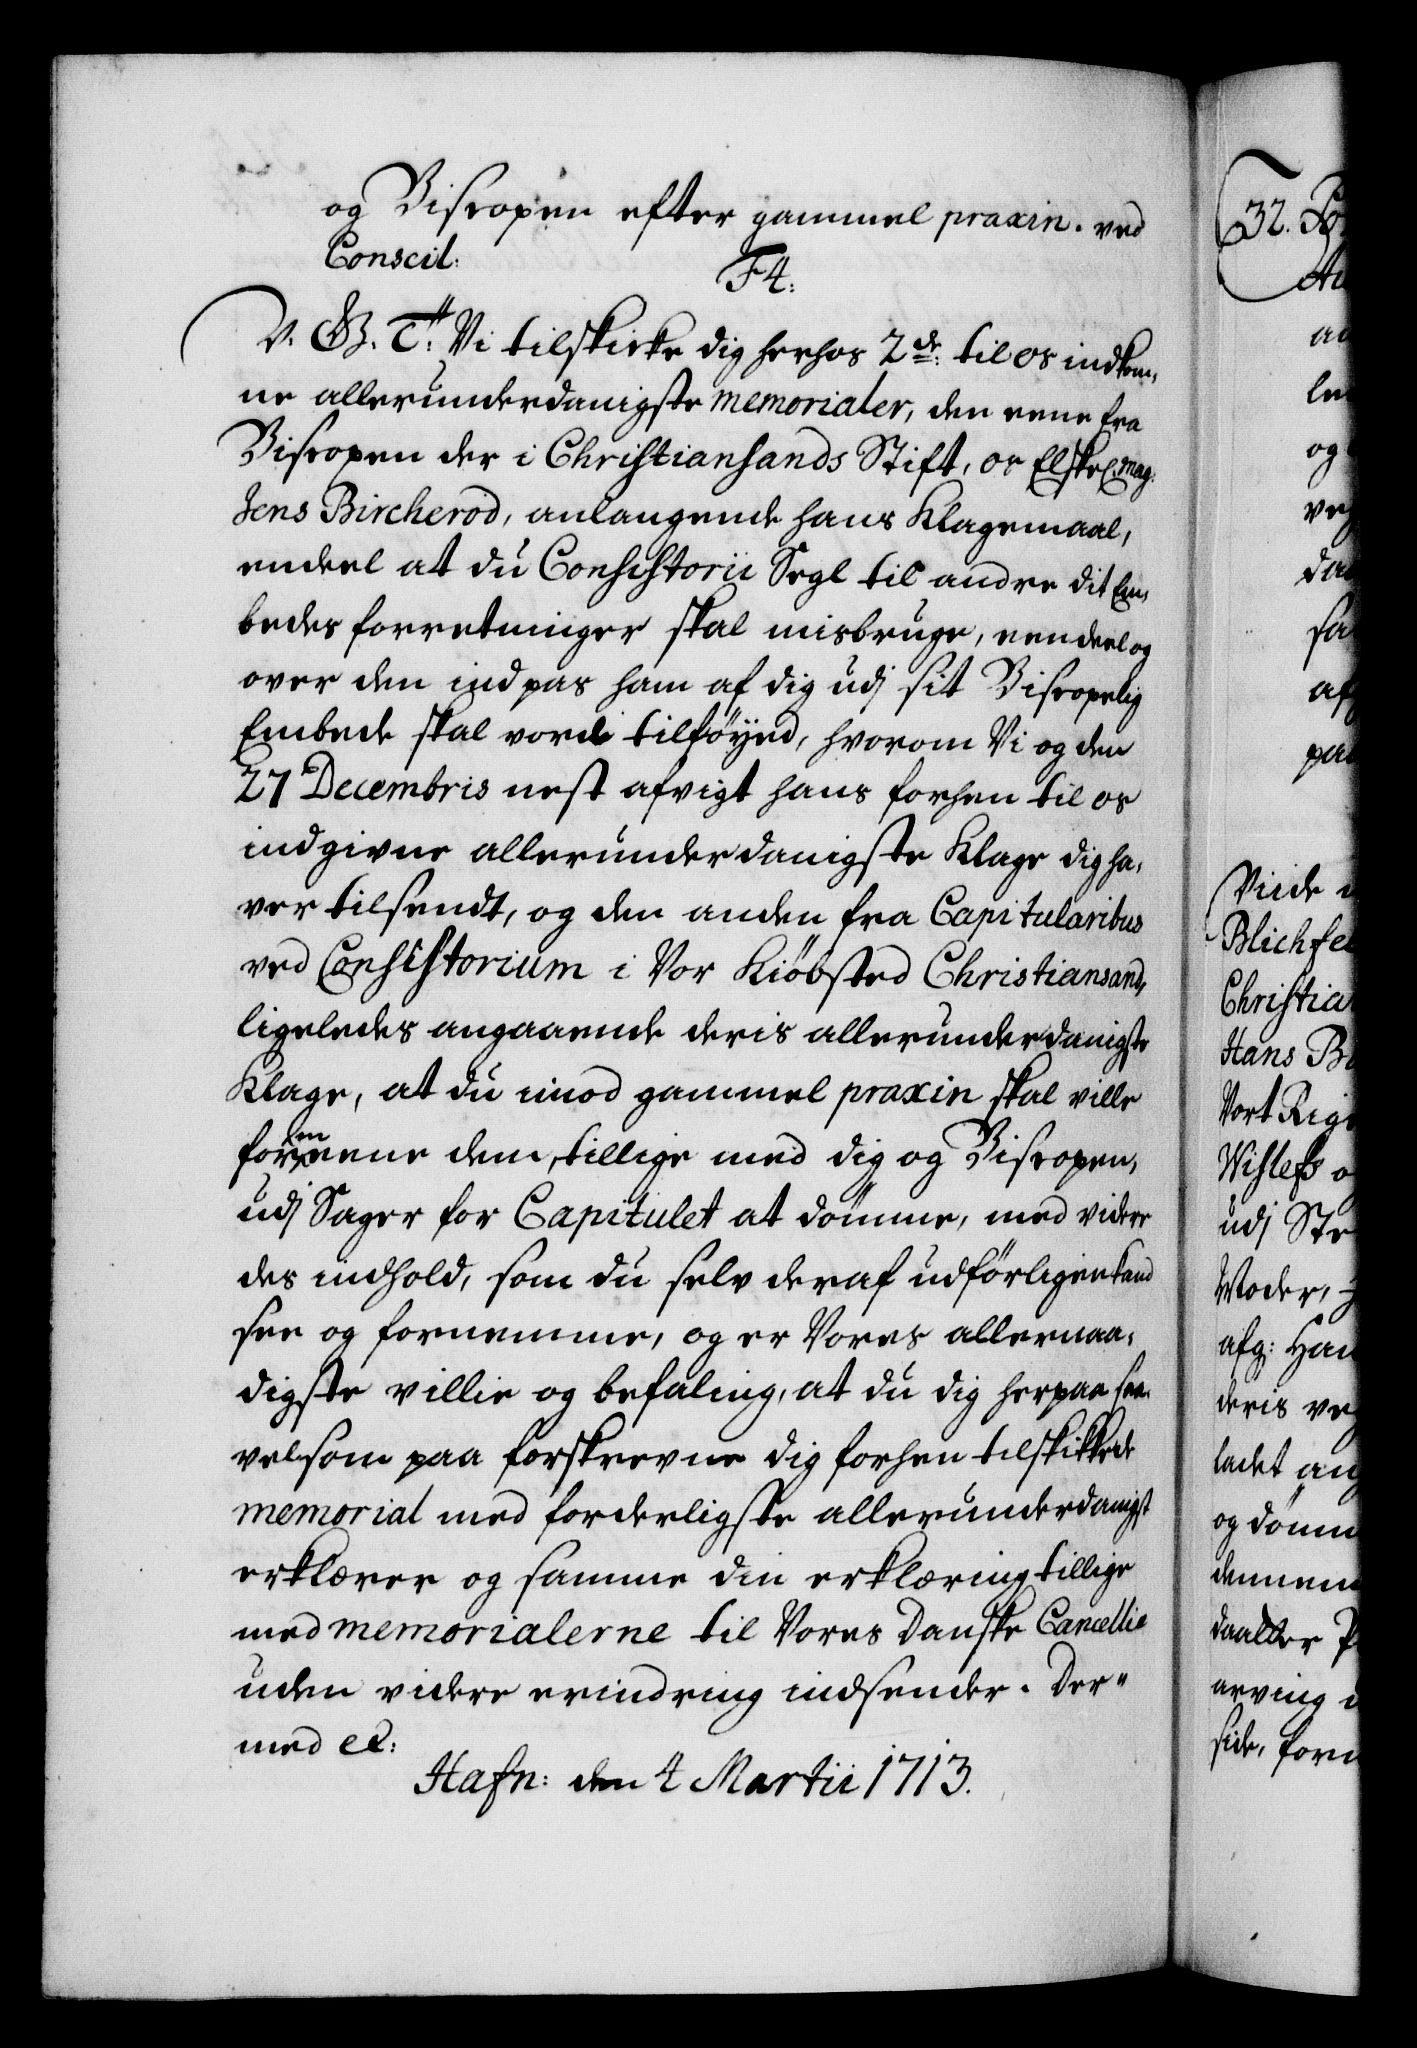 og Biscopen efter gammel praxin. ved
Conscil:
F4:
V. G. T. Vi tilskicke dig herhos 2de: til os indkom,
ne allerunderdanigste memorialer, den eene fra
Biscopen der i Christiansands Stift, os Elskel: Mag:
Jens Bircherod, anlangende hans Klagemaal,
endeel at du Consistorii Segl til andre dit Em,
bedes forretninger skal misbruge, eendeel og
over den indpas ham af dig udj sit Biscopelig
Embede skal vorde tilföyed, hvorom Vi og den
27 Decembris nest afvigt hans forhen til os
indgivne allerunderdanigste Klage dig ha,
ver tilsendt, og den anden fra Capitularibus
ved Consistorium i Vor Kiöbsted Christiansand,
ligeledes angaaende deris allerunderdanigste
Klage, at du imod gammel praxin skal ville
formeene dem, tillige med dig og Biscopen,
udj Sager for Capitulet at dömme, med videre
des indhold, som du selv deraf udförligen kand
see og fornemme, og er Vores allernaa,
digste villie og befaling, at du dig herpaa saa,
velsom paa forskrevne dig forhen tilskikkede
memorial med forderligste allerunderdanigst
erklærer og samme din erklæring tillige
med memorialerne til Vores Danske Cancellie
uden videre erindring indsender. Der"
med etc:
Hafn: den 4 Martii 1713.
32.
og
Viide
Christia
Hans
Vort Rig
udj
Moder,
afg: Han
deris
ladet
og dömm
arving
side,